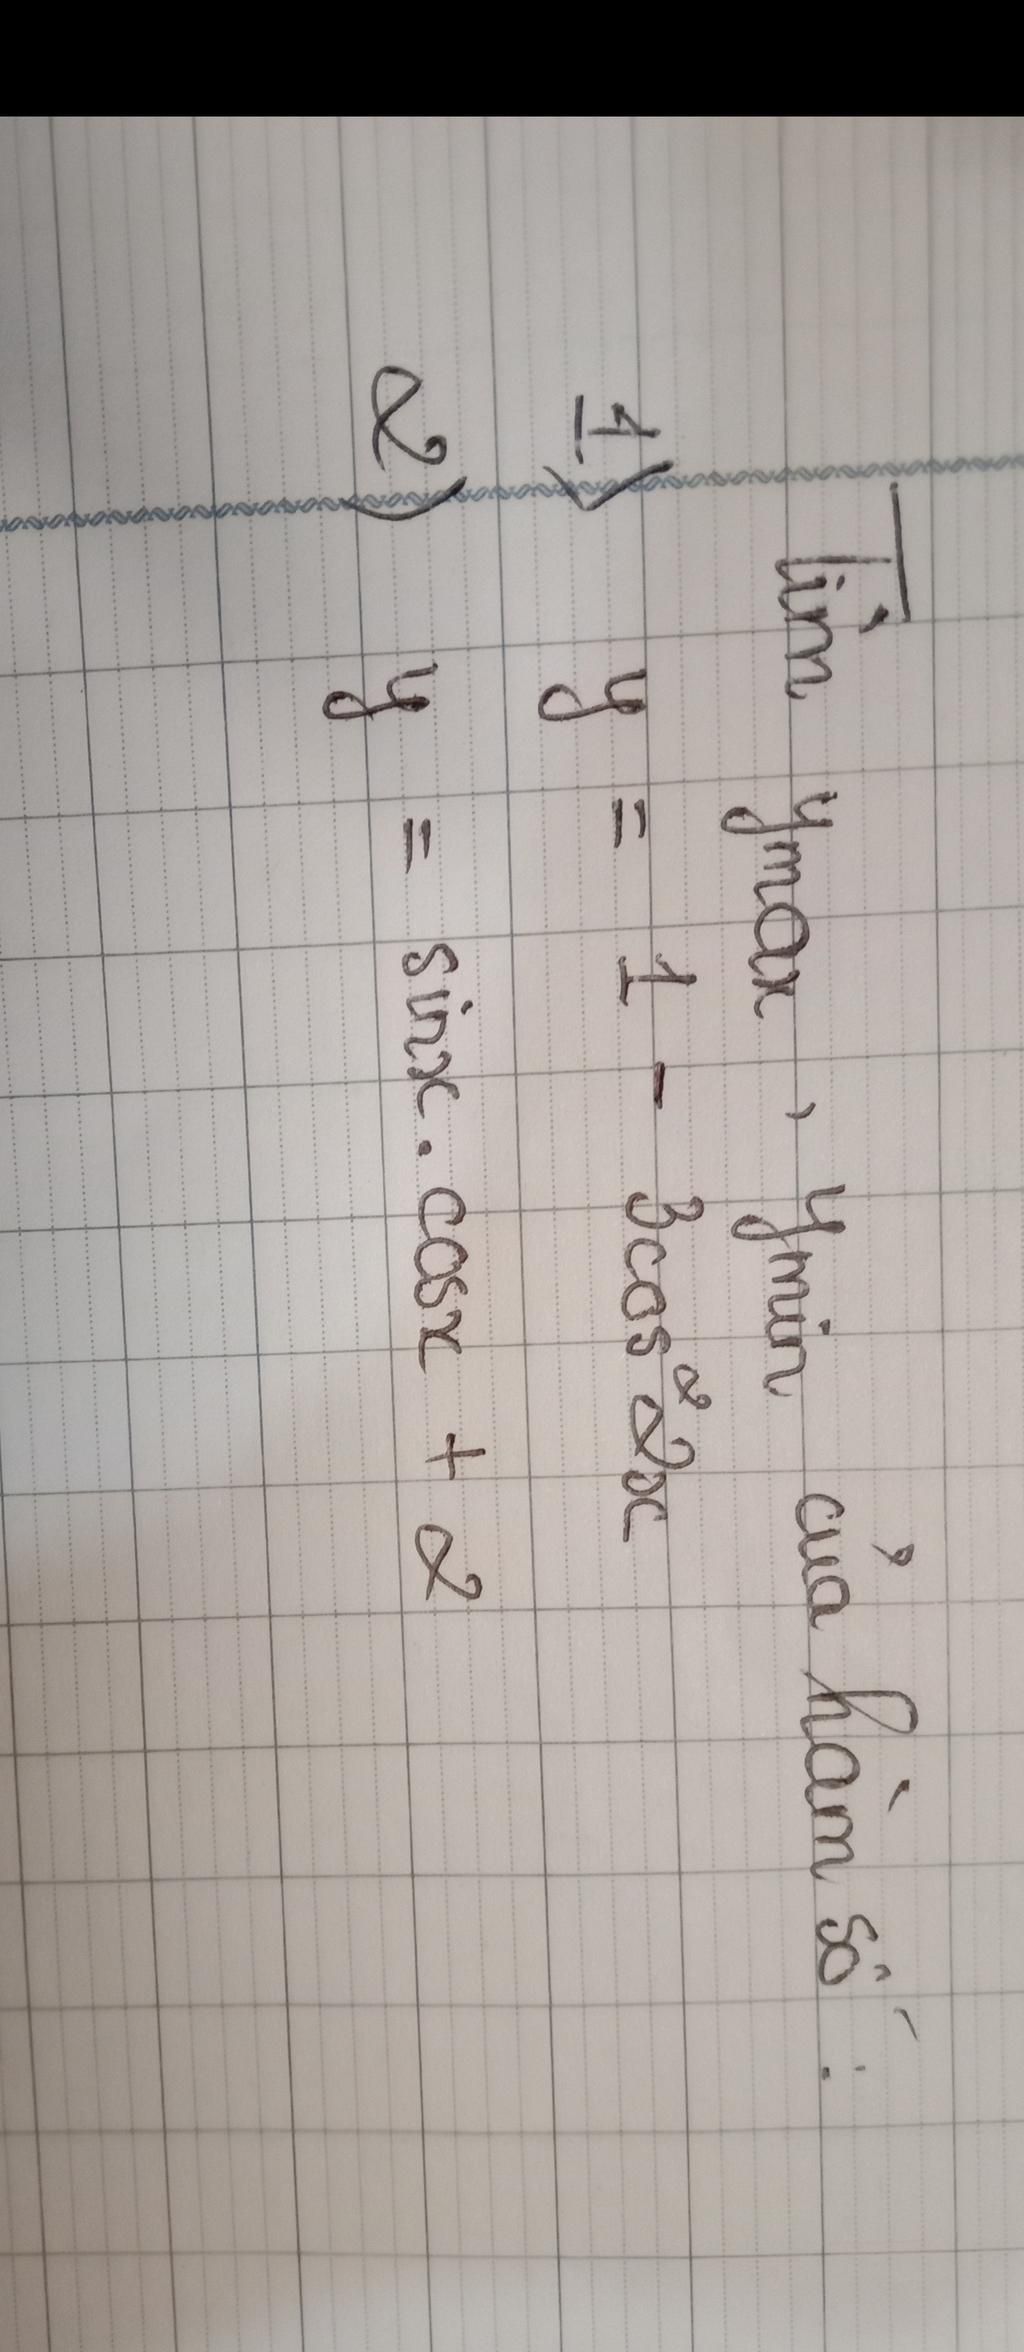 Tìm ymax, ymin của hàm số:
1) y = 1 - 3cos²2x
2) y = sinx.cosx + 2